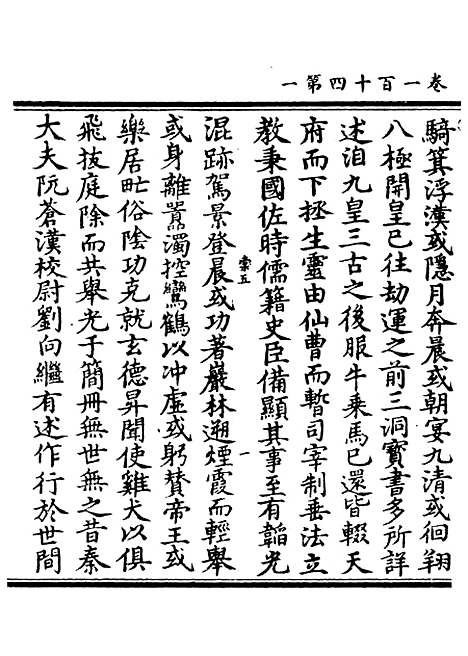 卷一百十四第一
騎箕浮漢或隱月奔晨或朝宴九清或徊翔
八極開皇已往劫運之前三洞寶書多所詳
述洎九皇三古之後服牛乘馬已還皆輟天
府而下拯生靈由仙曹而暫司宰制垂法立
教秉國佐時儒籍史臣備顯其事至有韜光
棠五
一
混跡駕景登晨或功著巖林遡煙霞而輕舉
或身離囂濁控鸞鶴以冲虛或躬贊帝王或
樂居甿俗陰功克就玄德昇聞使雞犬以俱
飛拔庭除而共舉光于簡冊無世無之昔秦
大夫阮蒼漢校尉劉向繼有述作行於世間